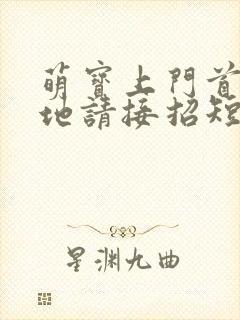 萌寶上門首
地請接招短
星渊九曲